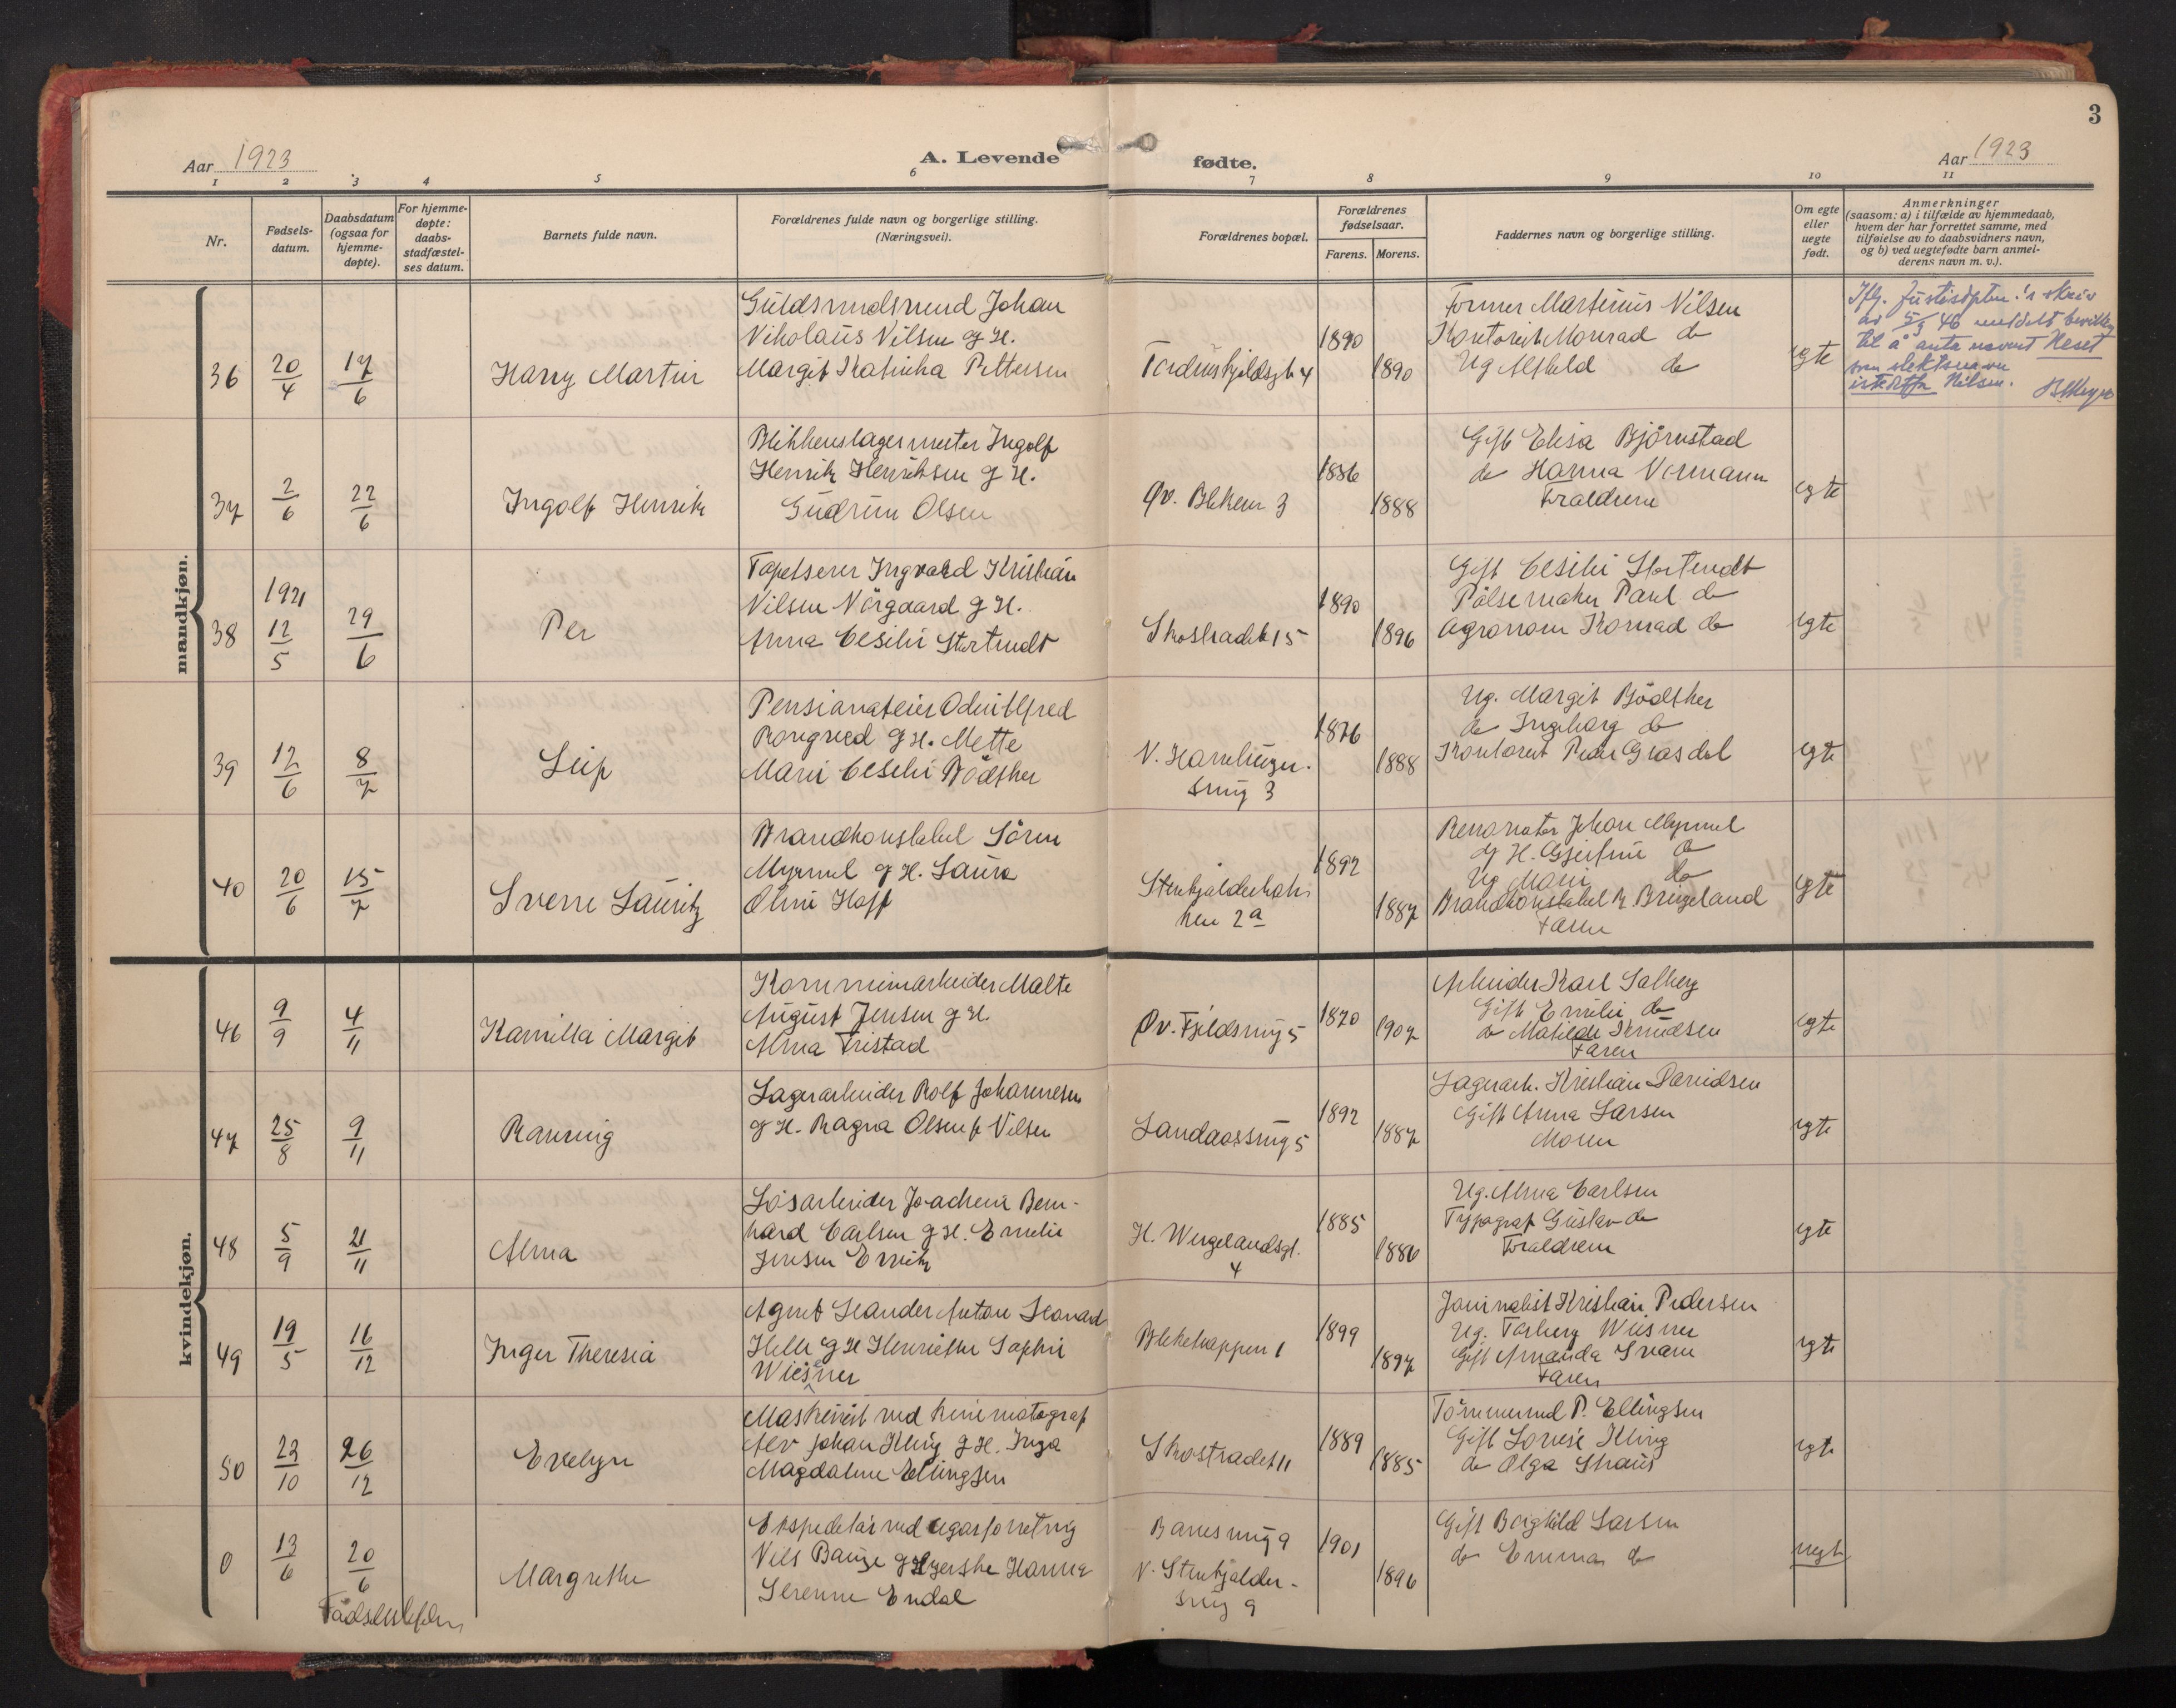 3
Aar 1923
A. Levende fødte.
Aar 1923
1 2 3 4 5 6 7 8 9 10 11
Nr.
Fødsels-
datum.
Daabsdatum
(ogsaa for
hjemme-
døpte).
For hjemme-
døpte:
daabs-
stadfæstel-
ses datum.
Barnets fulde navn.
Forældrenes fulde navn og borgerlige stilling.
(Næringsvei).
Forældrenes bopæl.
Forældrenes
fødselsaar.
Farens. Morens.
Faddernes navn og borgerlige stilling.
Om egte
eller
uegte
født.
Anmerkninger
(saasom: a) i tilfælde av hjemmedaab,
hvem der har forrettet samme, med
tilføielse av to daabsvidners navn,
og b) ved uegtefødte barn anmel-
derens navn m. v.).
mandkjøn.
36
20/4
17/6
Harry Martin
Guldsmedsvend Johan
Nikolaus Nilsen g H.
Margit Katinka Pettersen
Tordenskjoldsgt 4
1890
1890
Former Martinius Nilsen
Kontorist Monrad do
Ug Alfhild do
egte
av 5/3 46 meddelt bevilling
til å anta navnet Neset
som slektsnavn
istedetfor Nilsen.
37
2/6
22/6
Ingolf Henrik
Blikkenslagermester Ingolf
Henrik Henriksen g H.
Gudrun Olsen
Øv. Blekem 3
1886
1888
Gift Elisa Björnstad
do Hanna Normann
Forældrene
egte
38
1921
12/5
29/6
Per
Tapetserer Ingvald Kristian
Nilsen Nörgaard g H.
Anna Cesilie Stortendt
Skostrædet 15
1890
1896
Gift Cesilie Stortendt
Pölsemaker Paul do
Agronom Konrad do
egte
39
12/6
8/7
Leif
Pensionateier Odin Alfred
g H. Mette
Marie Cesilie Bödtker
V.
sving 3
1876
1888
Ug. Margit Bödtker
do Ingeborg do
Kontorist Peder Grasdal
egte
40
20/6
15/7
Sverre Lauritz
Brandkonstabel Sören
Myrmel g H. Laura
Oline Hoff
ken 2a
1892
1887
Renovatør Johan Myrmel
og H. Gjertine do
Ug Marie do
Brandkonstabel R. Bringeland
Faren
egte
kvindekjøn.
46
9/9
4/11
Kamilla Margit
Kommunearbeider Malte
August Jensen g H.
Alma Fristad
Øv. Fjeldsving 5
1870
1907
Arbeider Karl Solberg
Gift Emilie do
do Matilde Knudsen
Faren
egte
47
25/8
9/11
Rannvig
Lagerarbeider Rolf Johannesen
g H. Ragna Olsen f Nilsen
Landaassving 5
1892
1887
Lagerarb. Kristian Davidsen
Gift Anna Larsen
Moren
egte
48
5/9
21/11
Alma
Løsarbeider Joachem Bern-
hard Carlsen g H. Emelie
Jensen Emrik
H. Wergelandsgt.
4
1885
1886
Ug. Alma Carlsen
Typograf Gustav do
Forældrene
egte
49
19/5
16/12
Inger Theresia
Agent Leander Anton Leonard
Helle g H Henriette Sophie
Wiesner
Bleketrappen 1
1899
1897
Journalist Kristian Pedersen
Ug. Torberg Wiesner
Gift Amanda Svane
Faren
egte
50
23/10
26/12
Evelyn
Maskinist ved kinematograf
Alv Johan Kling g H. Inga
Magdalene Ellingsen
Skostrædet 11
1889
1885
Tömmermd P. Ellingsen
Gift Lovise Kling
do Olga Skaus
egte
0
13/6
20/6
Fødselsdagen
Margrethe
Ekspeditør ved cigarforretning
Nils Bauge g Hyerske Hanna
Serenne Endal
Banesving 9
V. Stenkjelder-
sving 9
1901
1896
Gift Borghild Larsen
do Emma do
uegt